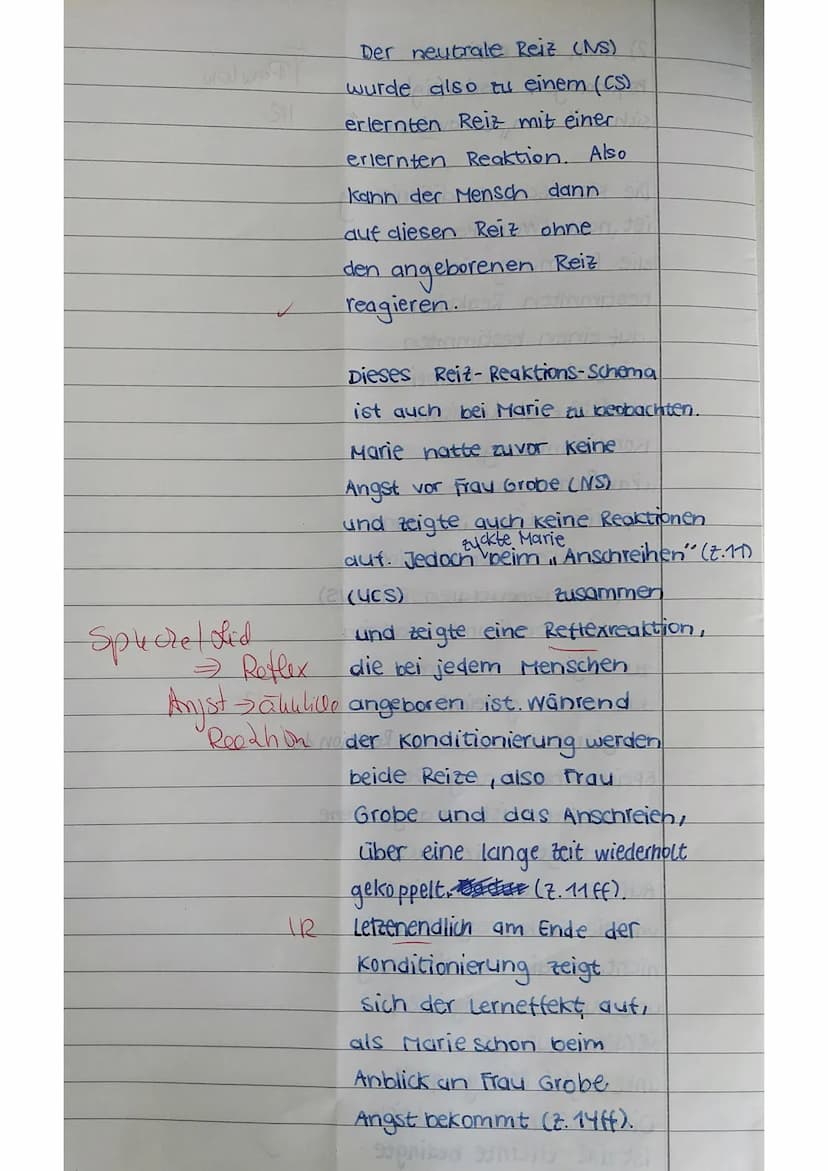 Der neutrale Reiz (NS)
wurde also zu einem (CS)
erlernten Reiz mit einer
erlernten Reaktion. Also
kann der Mensch dann
auf diesen Reiz ohne
den angeborenen Reiz
reagieren.
Dieses Reiz-Reaktions-Schema
ist auch bei Marie zu beobachten.
Marie hatte zuvor keine
Angst vor Frau Grobe (NS)
und zeigte auch keine Reaktionen
zuckte Marie
auf. Jedoch beim „Anschreihen" (Z.11)
(UCS) zusammen
und zeigte eine Reflexreaktion,
Speichel
⇒ Reflex die bei jedem Menschen
Angst → ähnliche angeboren ist. Während
Reaktion der Konditionierung werden
beide Reize, also Frau
Grobe und das Anschreien,
über eine lange Zeit wiederholt
gekoppelt. (Z. 11ff).
IR Letzenendlich am Ende der
Konditionierung zeigt
sich der Lerneffekt auf,
als Marie schon beim
Anblick an Frau Grobe
Angst bekommt (Z. 14ff).